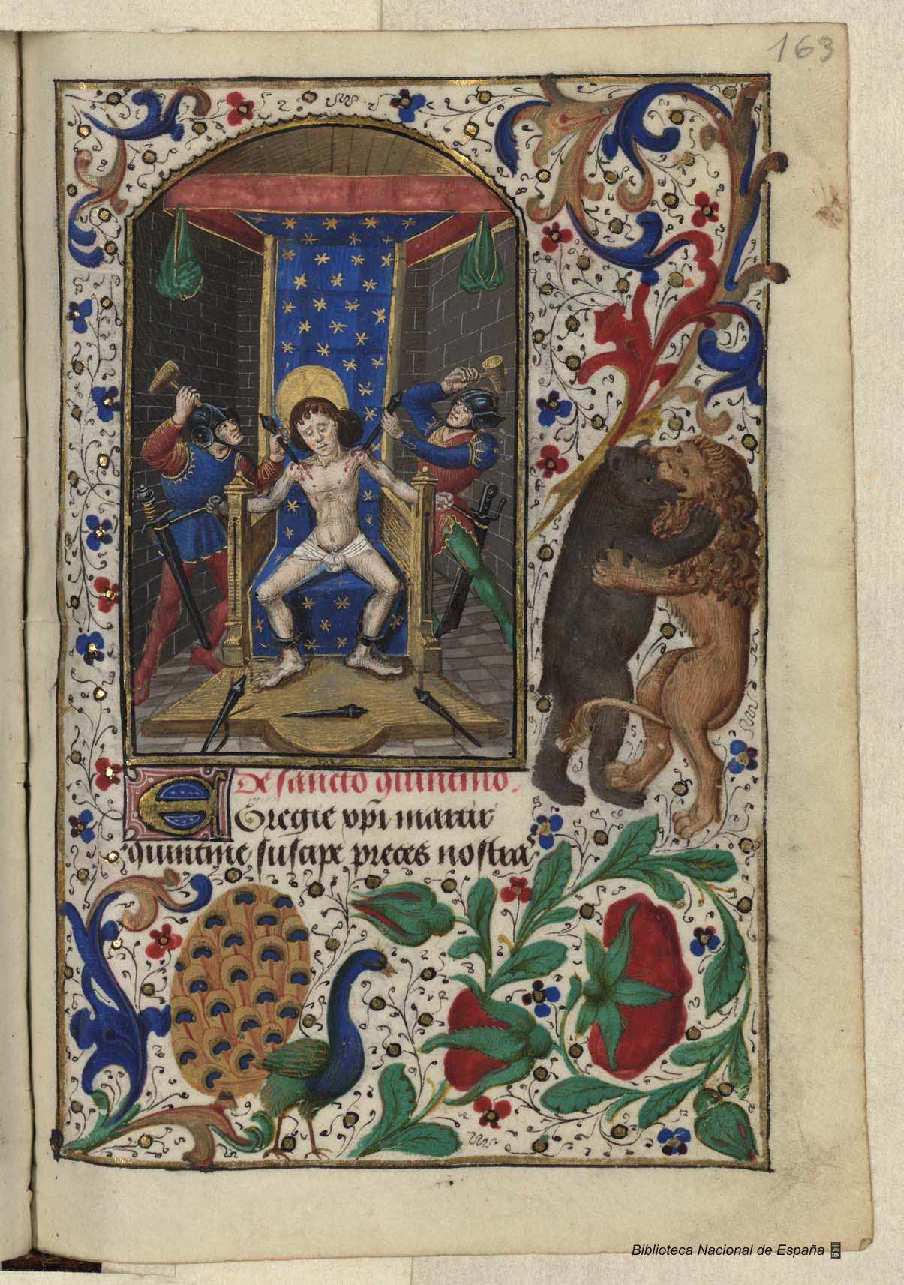 163
De sancto quintino.
Egregie xp̄i martir
quintine suscipe preces nostra
Biblioteca Nacional de España